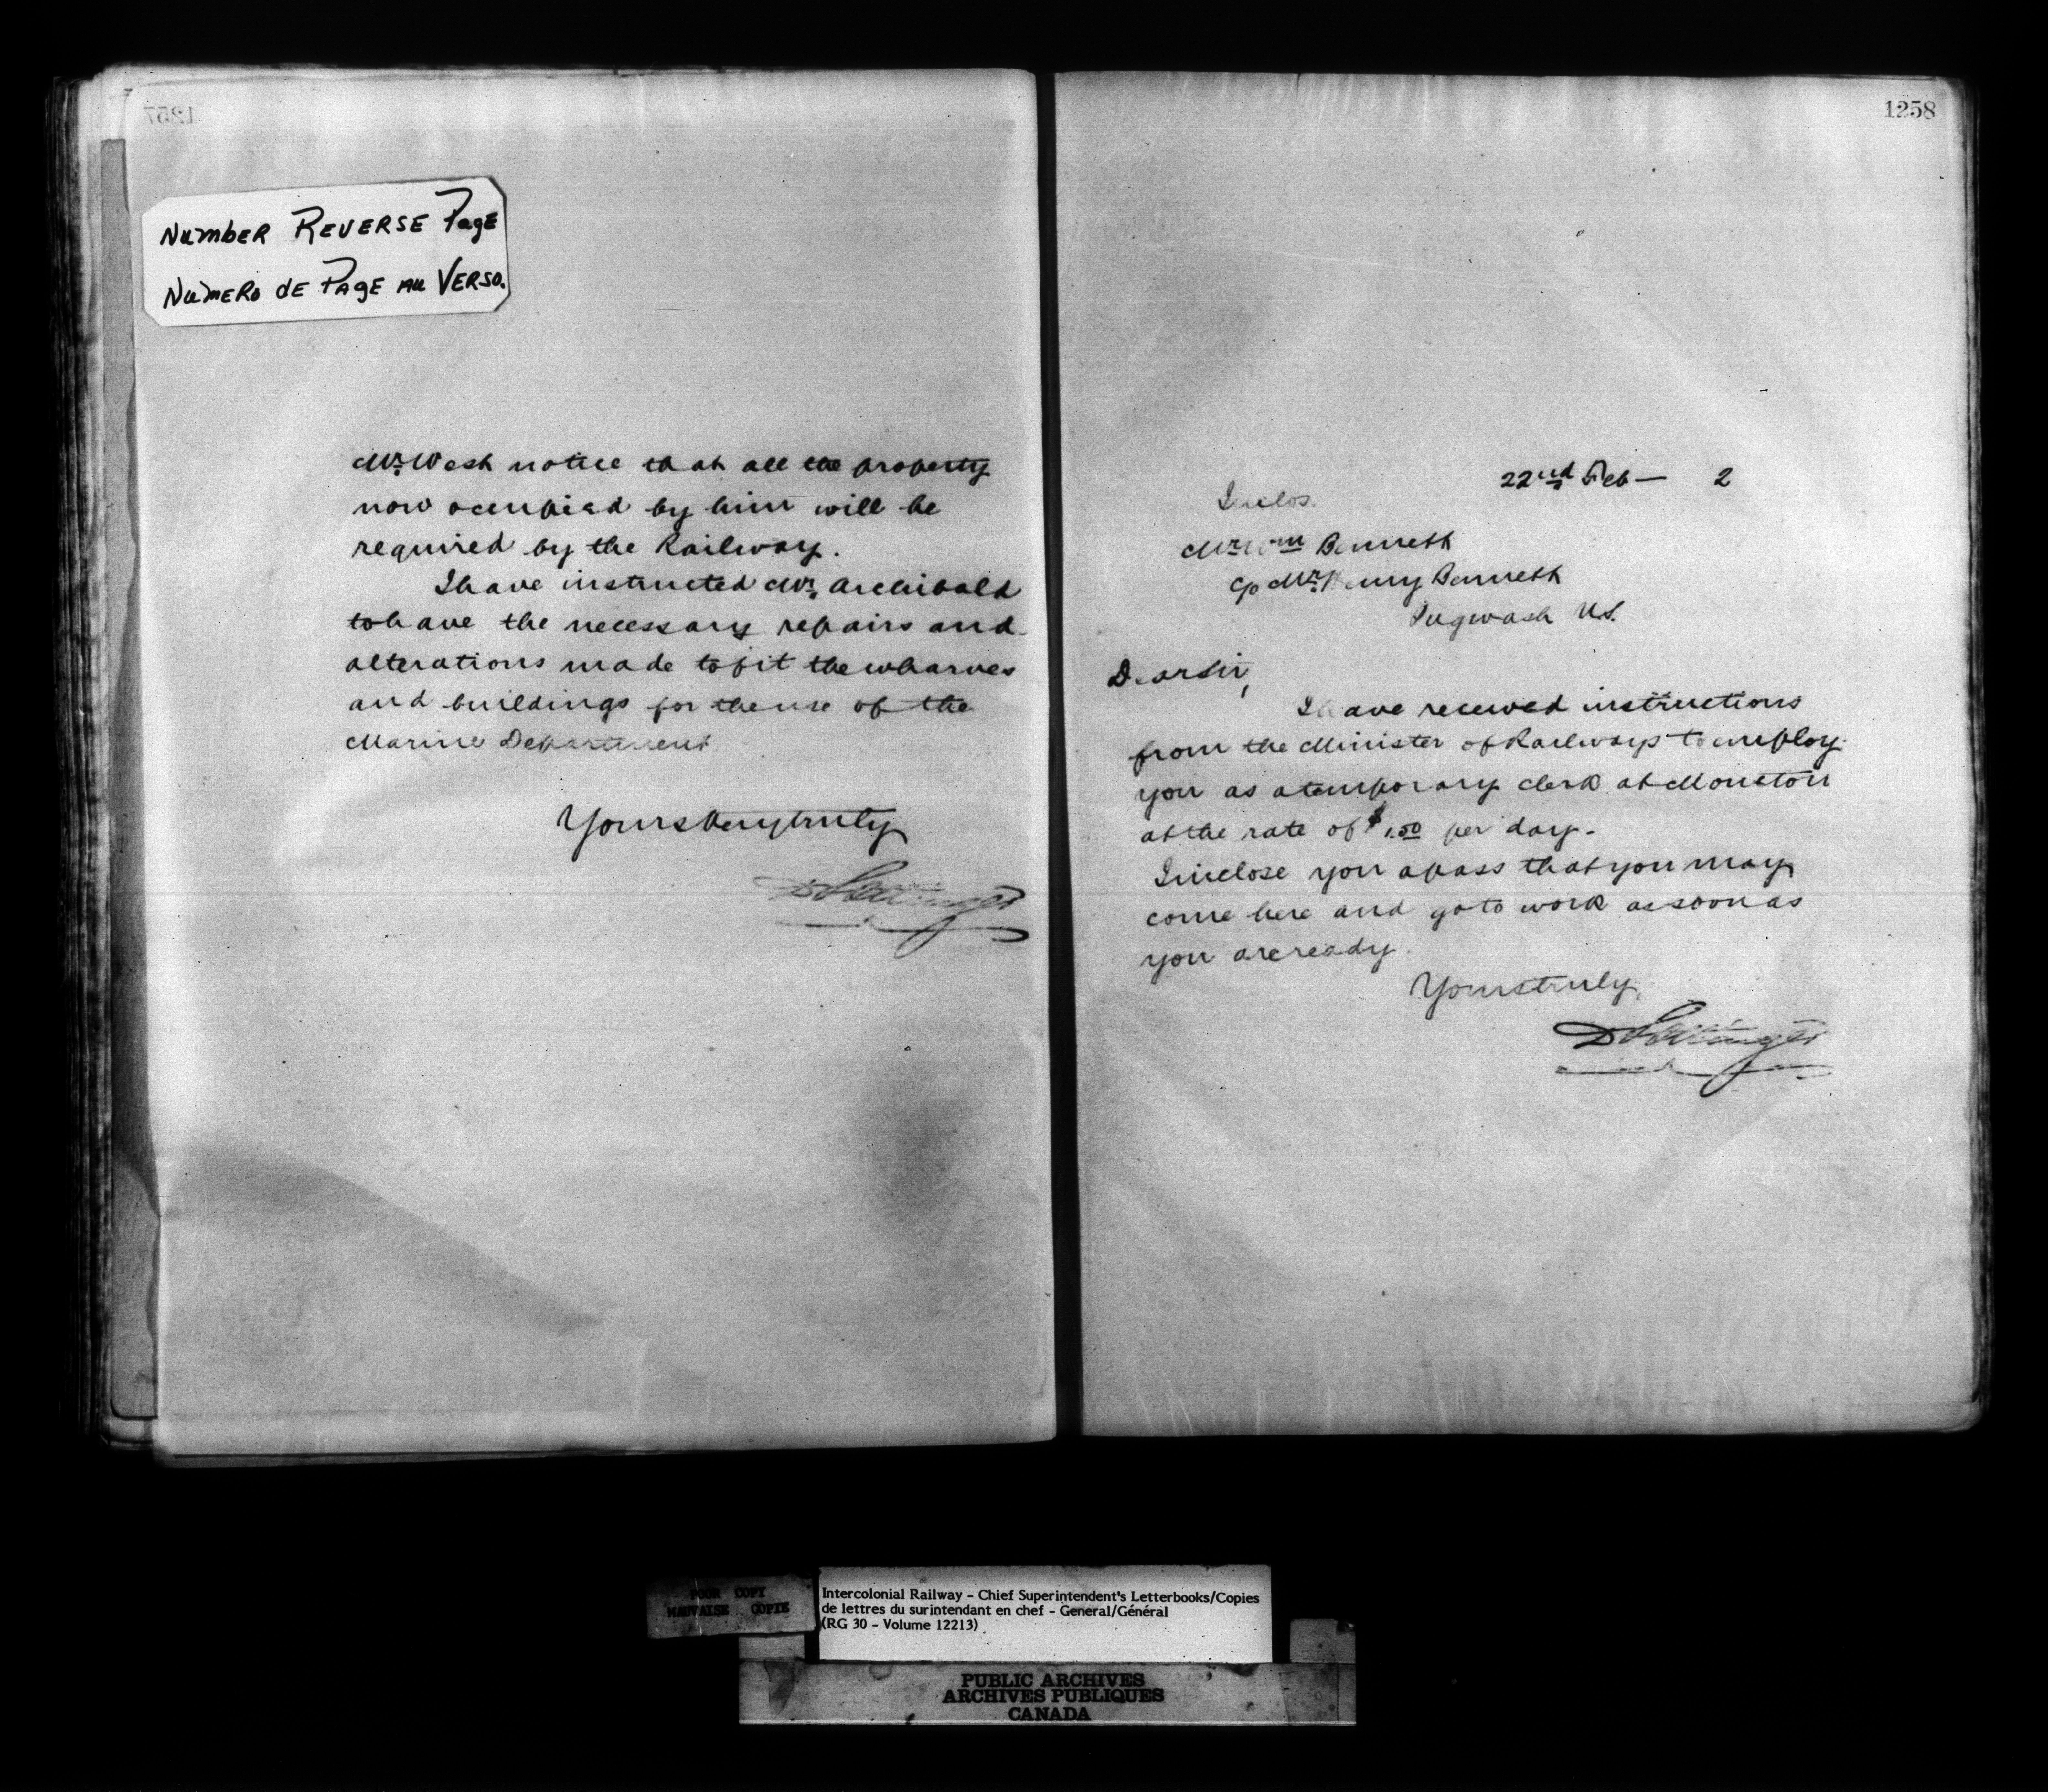 1257
Number Reverse Page
Numero de Page au Verso.
Mr. West notice that all the property
now occupied by him will be
required by the Railway.
I have instructed Mr. Archibald
to have the necessary repairs and
alterations made to fit the wharves
and buildings for the use of the
Marine Department
Yours very truly
D Pottinger
1258
22nd Feb — 2
Inclos.
Mr Wm Bennett
c/o Mr. Henry Bennett
Pugwash N.S.
Dear Sir,
I have received instructions
from the Minister of Railways to employ
you as a temporary clerk at Moncton
at the rate of $1.50 per day.
I inclose you a pass that you may
come here and go to work as soon as
you are ready.
Yours truly,
D Pottinger
POOR COPY
MAUVAISE COPIE
Intercolonial Railway - Chief Superintendent's Letterbooks/Copies
de lettres du surintendant en chef - General/Général
(RG 30 - Volume 12213)
PUBLIC ARCHIVES
ARCHIVES PUBLIQUES
CANADA